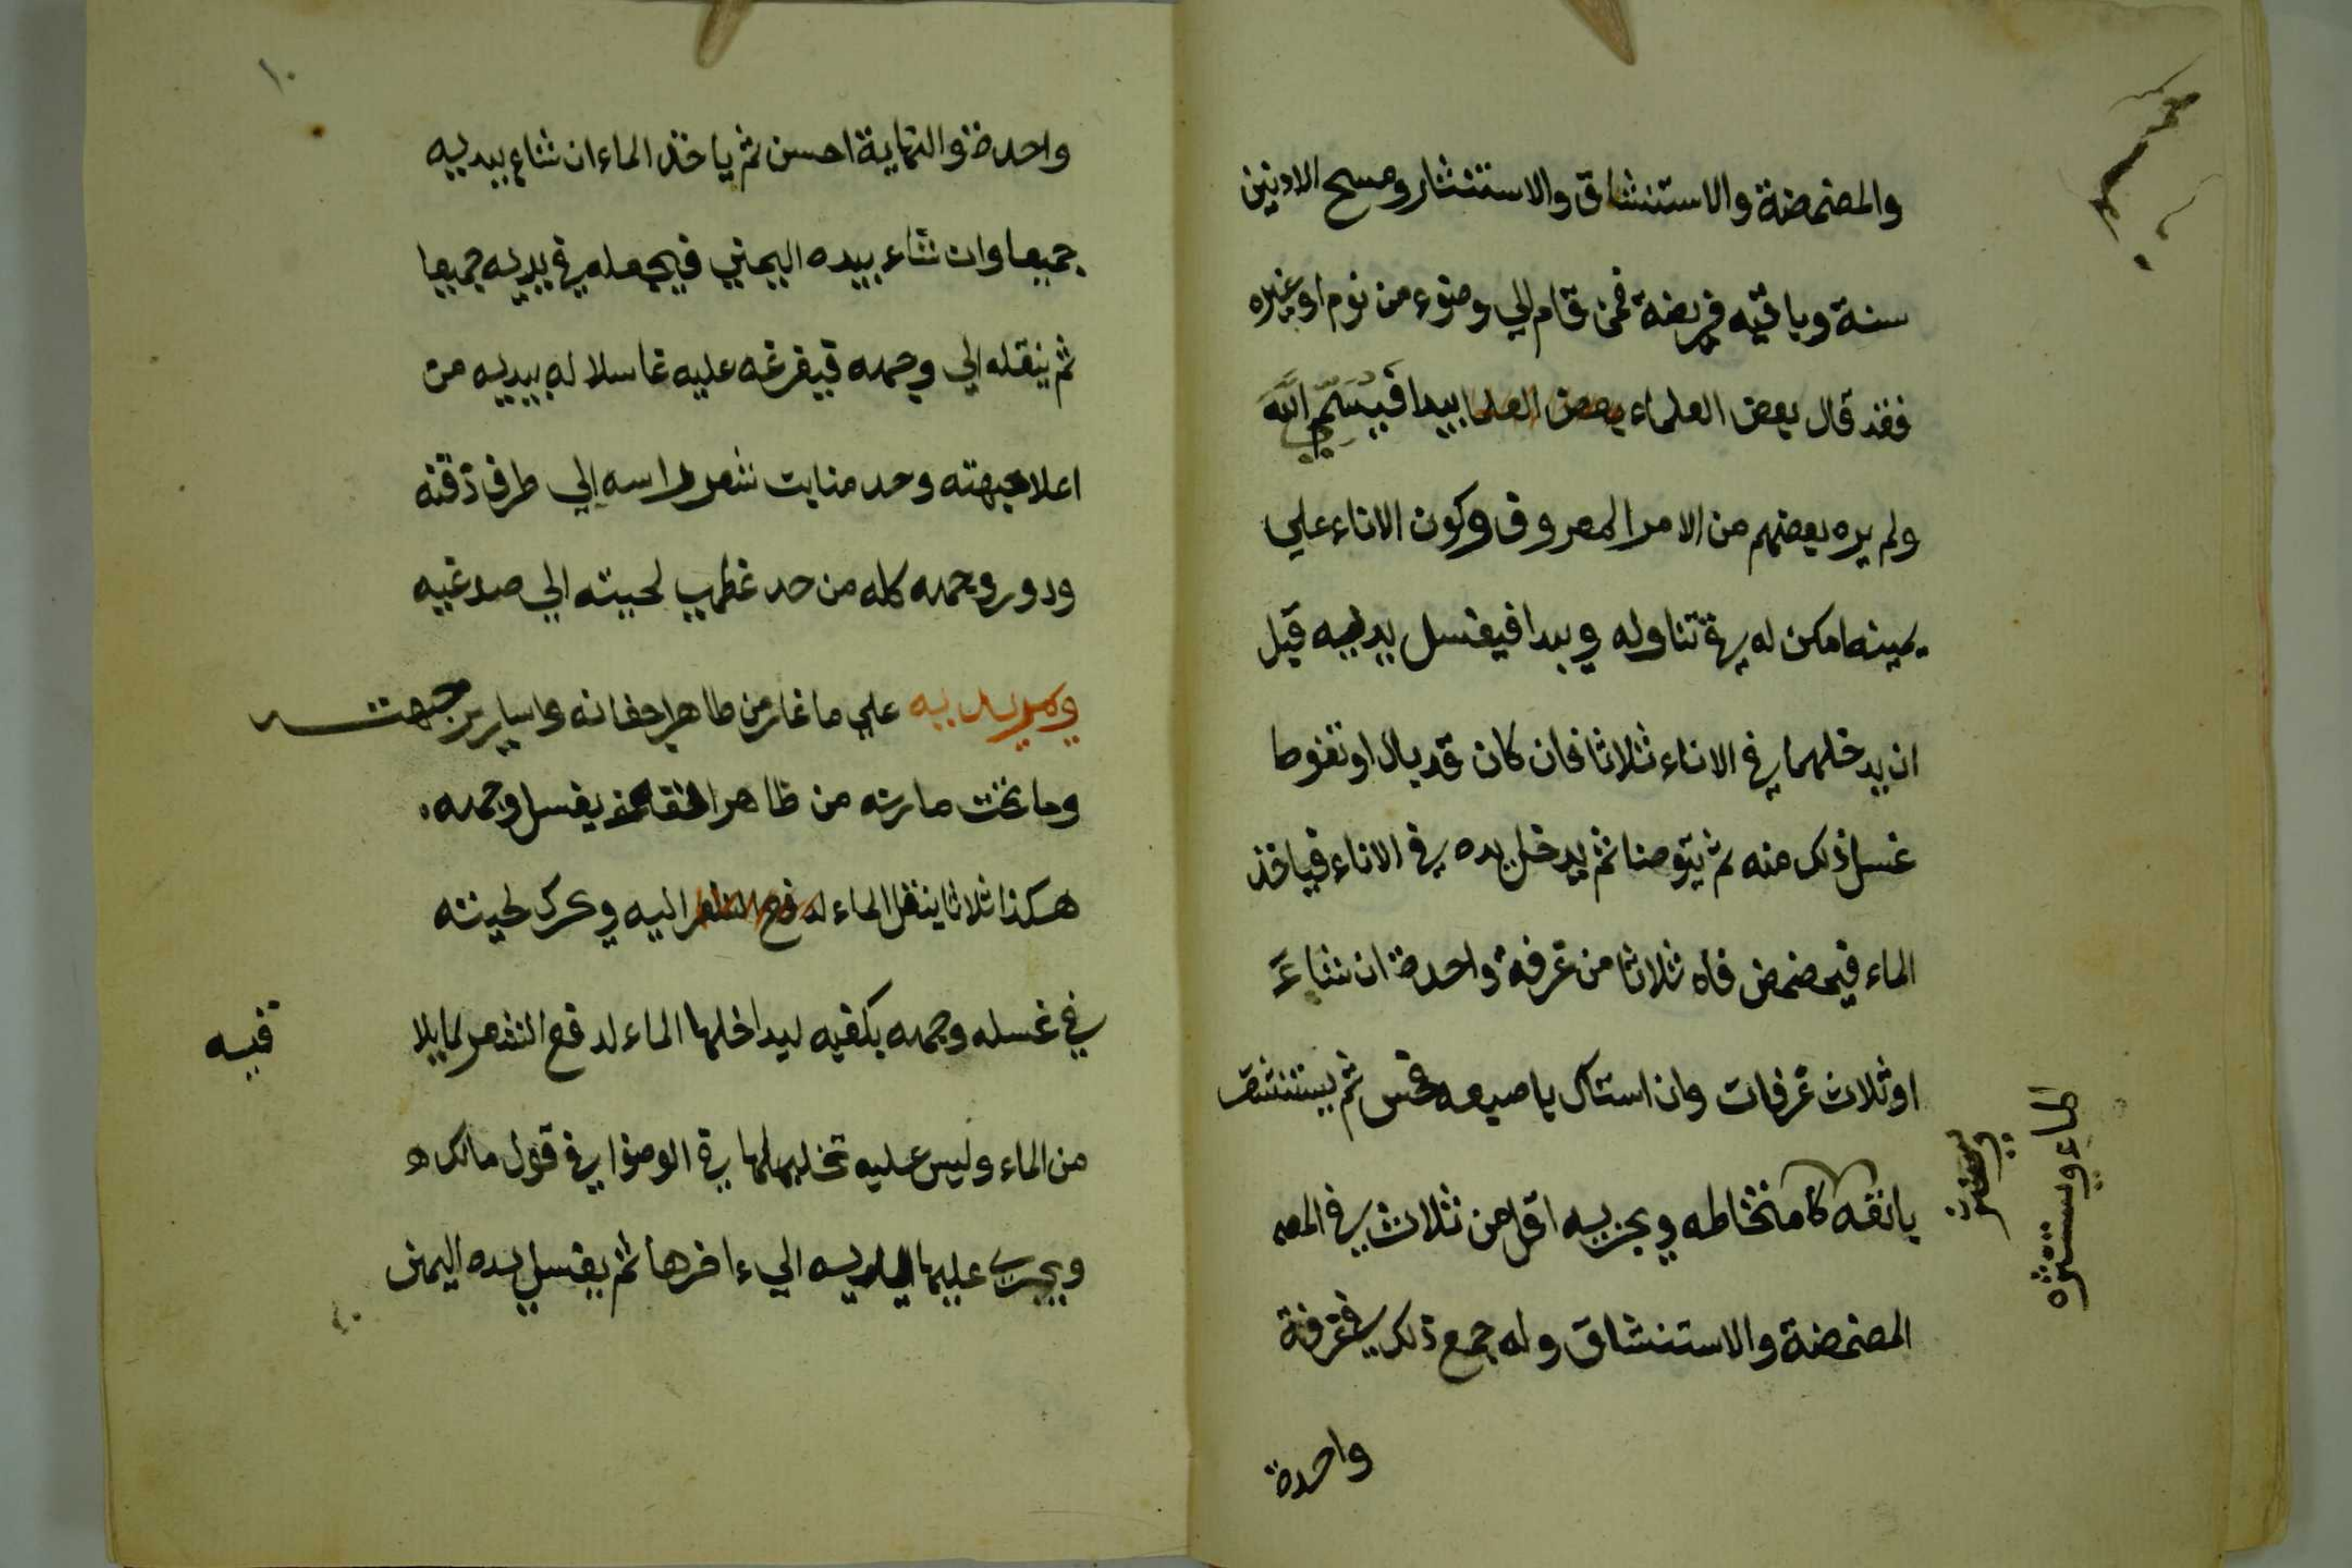 والمضمضة والاستنشاق والاستنثار ومسح الاذنين
سنة وباقيه فريضة فمن قام الي وضوء من نوم او غيره
فقد قال بعض العلماء بعض العلما يبدا فيسم الله
ولم يره بعضهم من الامر المعروف وكون الاناء علي
يمينه امكن له في تناوله ويبدا فيغسل يديه قبل
ان يدخلهما في الاناء ثلاثا فان كان قد بال او تغوط
غسل ذلك منه ثم يتوضا ثم يدخل يده في الاناء فياخذ
الماء فيمضمض فاه ثلاثا من غرفة واحدة ان شاءَ
او ثلاث غرفات وان استاك باصبعه فحسن ثم يستنشق
بانفه كامتخاطه ويجزيه اقل من ثلاث في المضـ
الماء ويستنثره
المضمضة والاستنشاق وله جمع ذلك في غرفة
واحدة
١٠
واحدة والنهاية احسن ثم ياخذ الماء ان شاء بيديه
جميعا وان شاء بيده اليمني فيجعله في يديه جميعا
ثم ينقله الي وجهه فيفرغه عليه غاسلا له بيديه من
اعلا جبهته وحد منابت شعر راسه الي طرف ذقنه
ودور وجهه كله من حد عظمي لحيته الي صدغيه
ويمر يديه علي ما غار من ظاهر اجفانه واسارير جبهته
وما تحت مارنه من ظاهر انفه يغسل وجهه
هكذا ثلاثا ينقل الماء اليه ويحرك لحيته
في غسل وجهه بكفيه ليداخلها الماء لدفع الشعر لما يلا
قيه
من الماء وليس عليه تخليلها في الوضوا في قول مالك
ويجري عليها يديه الي ءاخرها ثم يغسل يده اليمنى